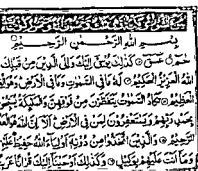 بسم الله الرحمن الرحيم
حم عسق كذلك يوحي إليك وإلى الذين من قبلك
الله العزيز الحكيم له ما في السموات وما في الأرض وهو
العظيم تكاد السموات يتفطرن من فوقهن والملئكة يسبحون
بحمد ربهم ويستغفرون لمن في الأرض ألا إن الله هو
الرحيم والذين اتخذوا من دونه أولياء الله حفيظ عليهم
وما أنت عليهم بوكيل وكذلك أوحينا إليك قرآنا